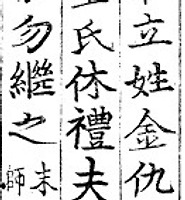 立姓金仇
氏休禮夫
勿繼之末師